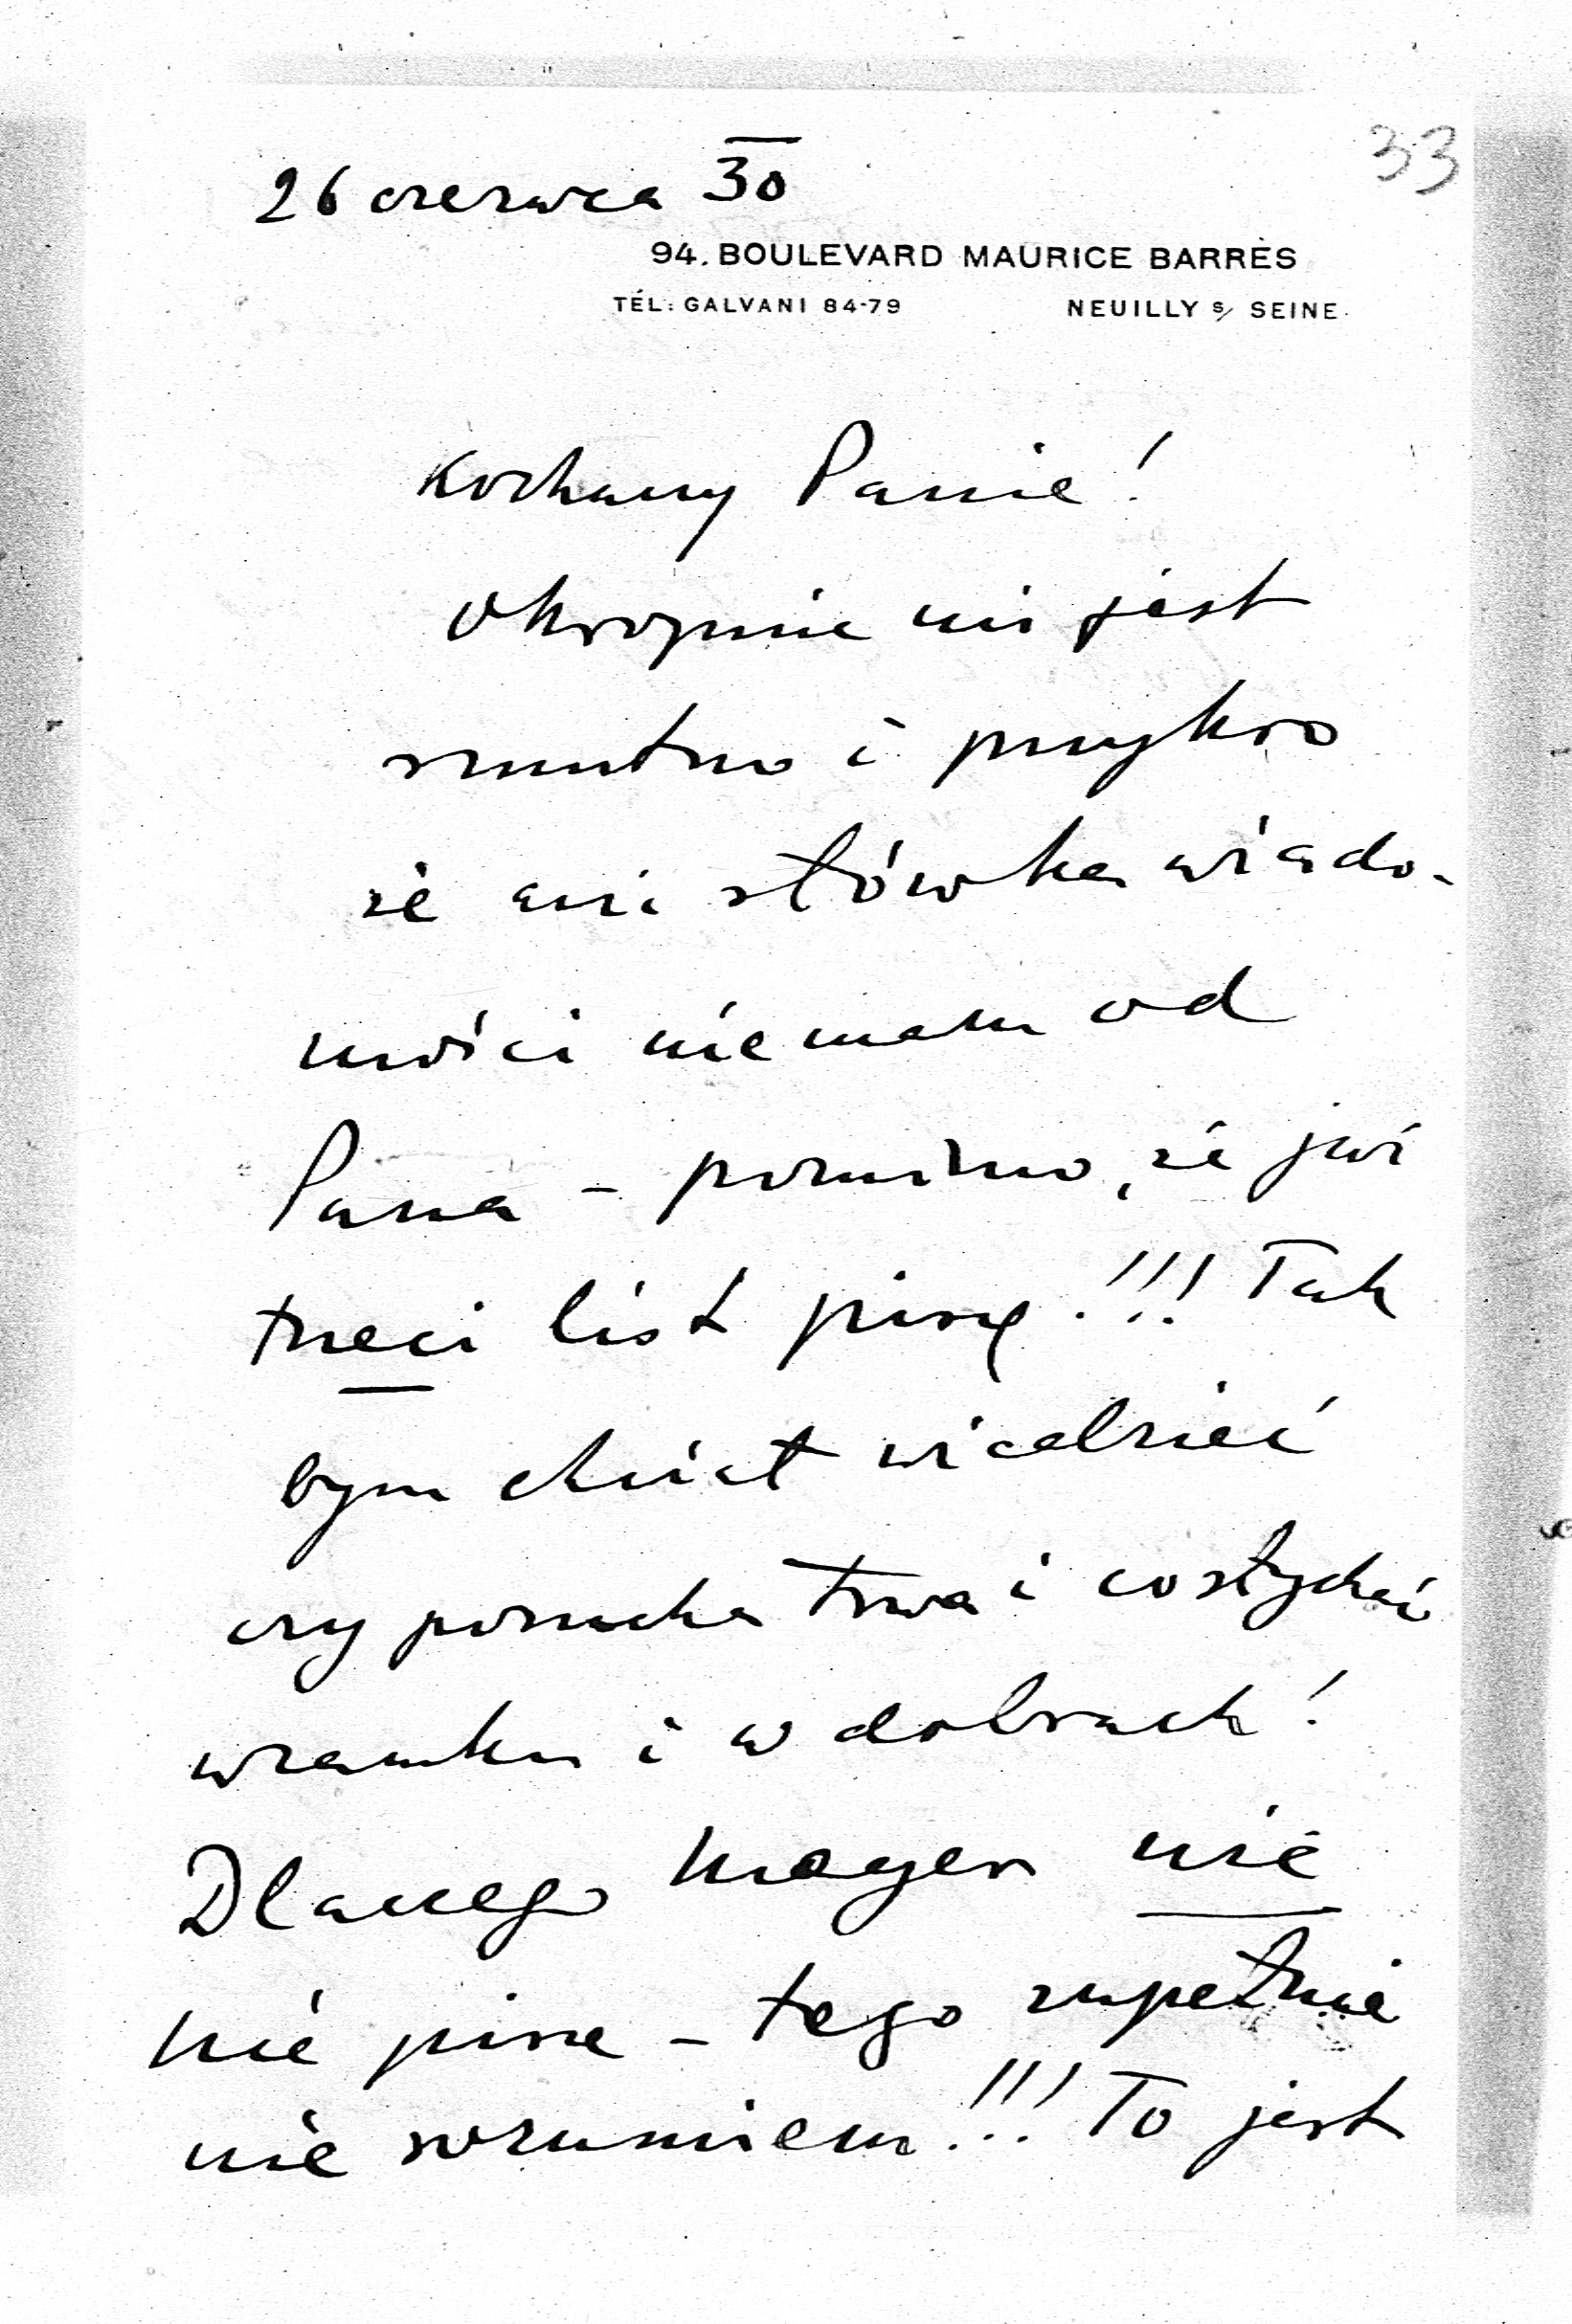 33
26 czerwca 30
94. BOULEVARD MAURICE BARRÈS
TÉL: GALVANI 84-79 NEUILLY s/ SEINE.
Kochany Panie!
Okropnie mi jest
smutno i przykro
że ani słówka wiado-
mości nie mam od
Pana – pomimo, że już
trzeci list piszę!!! Tak
bym chciał wiedzieć
czy posucha trwa i co słychać
w zamku i w dobrach!
Dlaczego Mayer nie
nie pisze – tego zupełnie
nie rozumiem!!! To jest